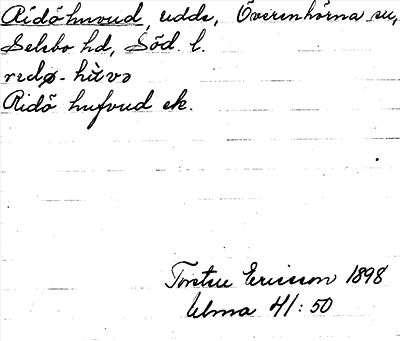 Ridöhuvud, udde, Överenhörna sn,
Selebo hd, Söd. l.
ridø-hùvə
Ridö hufvud ek.
Torsten Ericsson 1898
Ulma 41:50